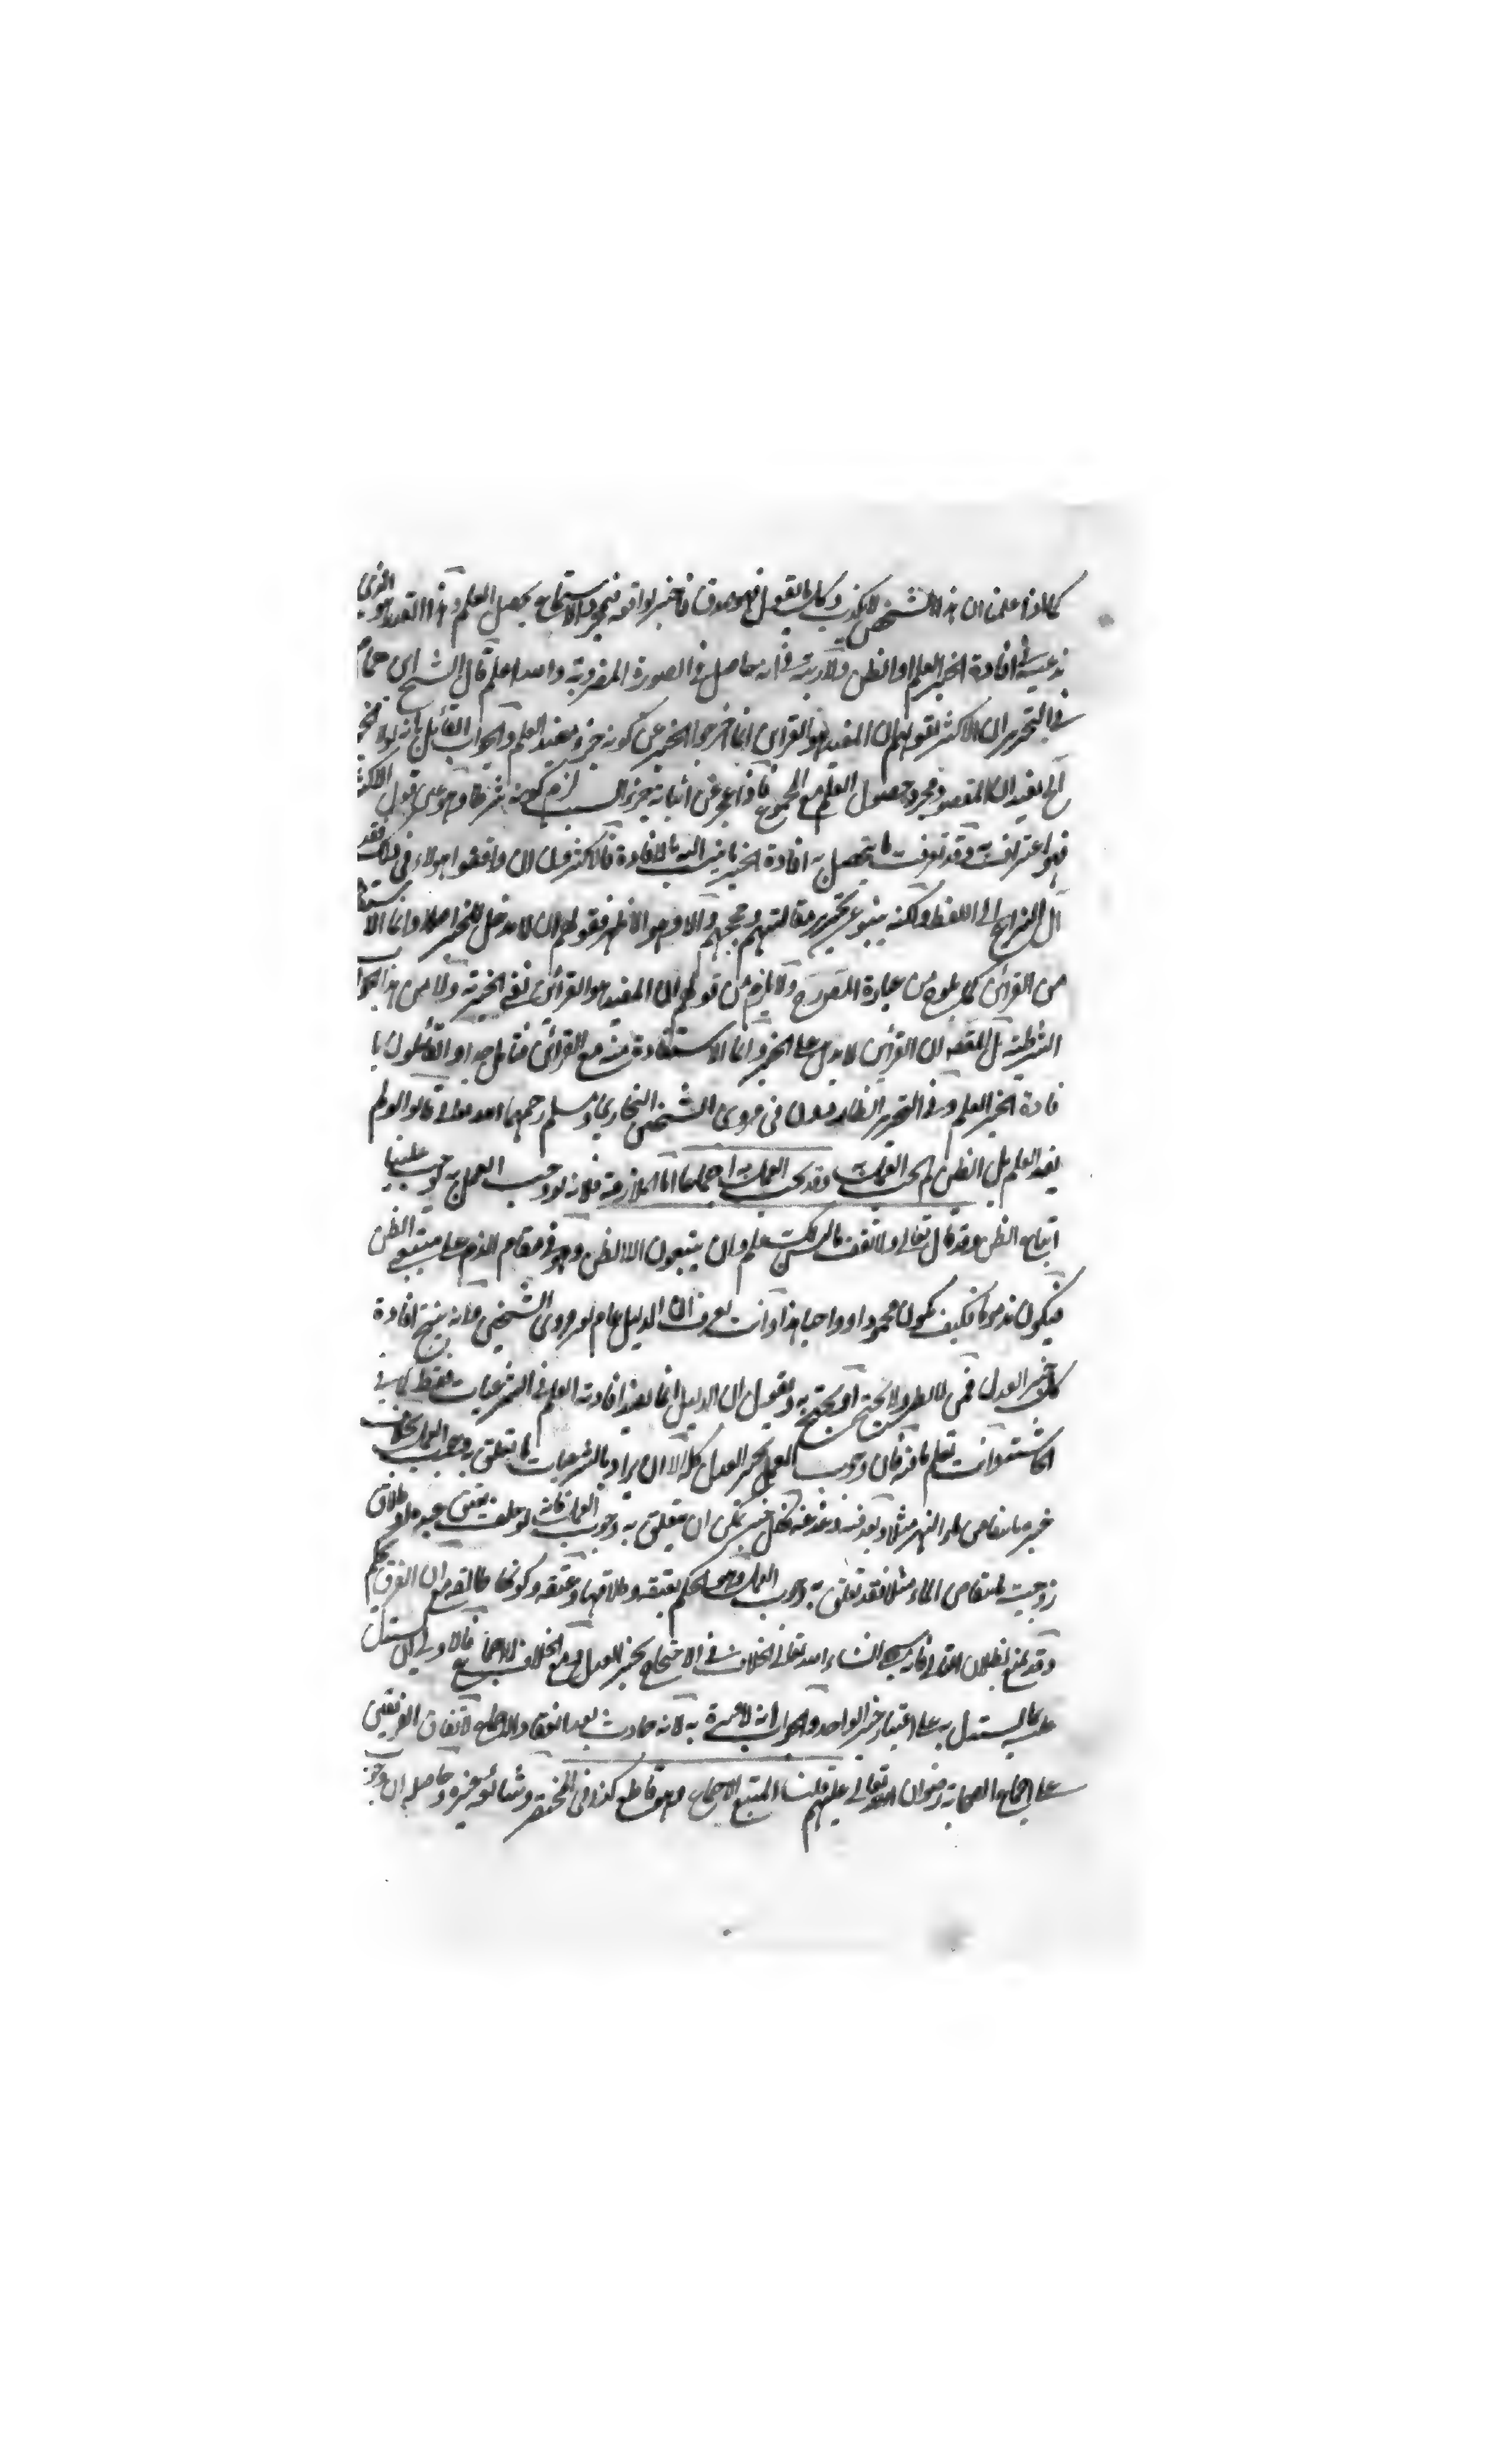 كما اذا علمنا ان هذا الشخص لا يكذب وكل ما يقول فهو صدق فاخبر بواقعة فبمجرد الاستماع يحصل العلم وهذا القدر هو الذي
ندعيه في افادة الخبر العلم او الظن ولا ريب في انه حاصل في الصورة المفروضة والله اعلم قال الشيخ ابن همام
في التحرير ان الاكثر لقولهم ان المفيد هو القرائن انما اخرجوا الخبر عن كونه جزء مفيد العلم والجواب القائل بانه لولا الخبر
الخ يفيد ان المقصود مجرد حصول العلم مع المجموع فاذا عجز عن اثباته جزء السبب لزم كونه شرطا وهو عين قول الاكثر
فهو اعتراف به وقد تعرفت ما يتحصل به افادة الخبر ما ينسب اليه بالافادة فالاكثرون ان وافقوا هؤلاء في ذلك فقد
آل النزاع الى اللفظ ولكنه ينبو عنه تحرير مقالتهم وحججهم والا وهو الاظهر فقولهم ان لا مدخل للخبر اصلا وانما الاستفادة
من القرائن كما يلوح من عبارة المص رح ولا يلزم من قولهم ان المفيد هو القرائن نفي الخبرية ولا من هذا الجواب
الشرطية بل المقصد ان القرائن لا تدل على الخبر وانما الاستفادة منه مع القرائن فتأمل جدا والقائلون با
فادة الخبر العلم وفي التحرير الظاهر فيدن في مروى الشيخين البخاري ومسلم رحمهما الله تعالى قالوا لو لم
يفد العلم بل الظن لم يجب العمل به وقد يجب العمل به اجماعا اما الملازمة فلانه لو وجب العمل به لوجب علينا
اتباع الظن وقد قال تعالى ولا تقف ما ليس لك به علم وان يتبعون الا الظن وهو في مقام الذم على متبعي الظن
فيكون مذموما فكيف يكون محمودا وواجبا هذا وانت تعرف ان الدليل عام لغير مروى الشيخين فانه ينتج افادة
كل خبر العدل فمن لا يطرد لا يحتج او يحتج به ويقول ان الدليل انما يفيد افادته العلم في الشرعيات فقط كما في
الحاشية وانت تعلم ما فيه فان وجوب العمل بخبر العدل كله الا ان يراد بالشرعيات ما يتعلق به وجوب العمل بخلاف
خبره بانتقاص ماء النهر مثلا وبعد فيه دغدغة فكل خبر يمكن ان يتعلق به وجوب العمل فانه لو حلف بعتق عبده او طلاق
زوجته بانتقاص الماء مثلا فقد تعلق به وجوب العمل وهو الحكم بعتقه وطلاقها وعتقه وكونها طالقة مع ان الفرق تحكم
وقد يمنع بطلان التالي فانه سيجئ انشاء الله تعالى الخلاف في الاحتجاج بخبر العدل ومع الخلاف لا اجماع فالاولى ان يستدل
عليه بما يستدل به على اعتبار خبر الواحد والجواب انه لا عبرة به لانه حادث بعد انعقاد الاجماع لاتفاق الفريقين
على اجماع الصحابة رضوان الله تعالى عليهم قلنا المتبع الاجماع وهو قاطع كذا في المختصر وشأنه وغيره وحاصله ان وجوب